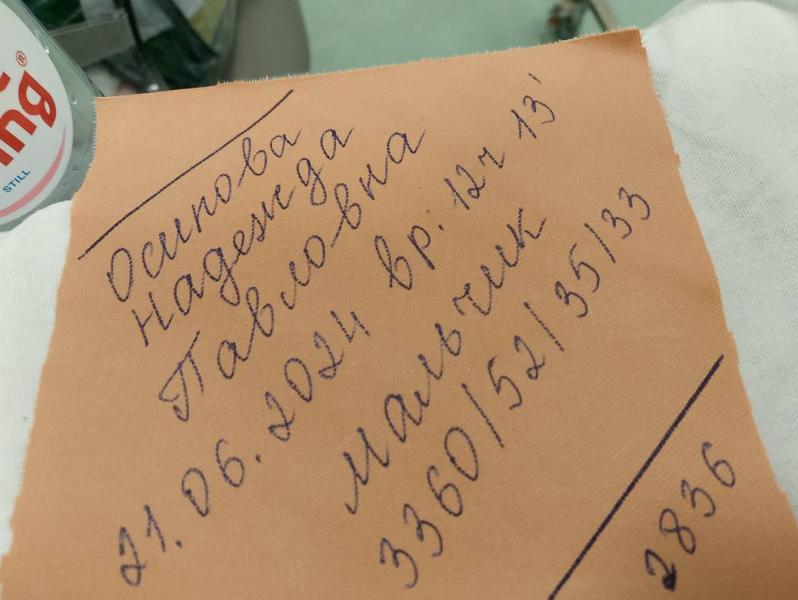 Осипова
Надежда
Павловна
21.06.2024 вр. 12ч 13'
Мальчик
3360/52/35/33
2836
STILL